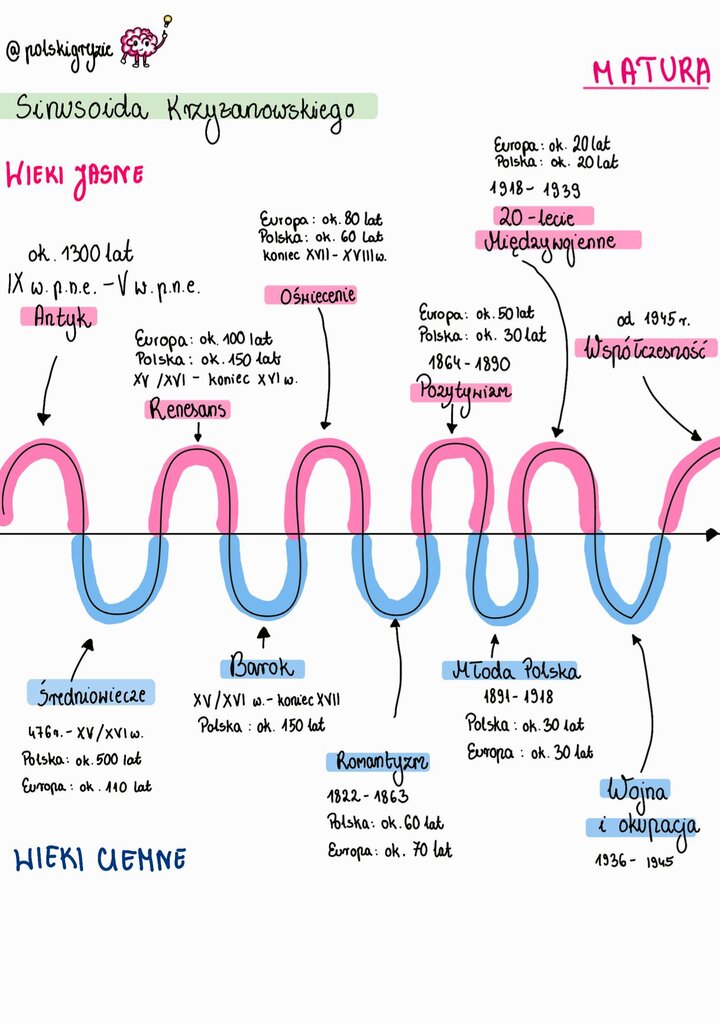 @polskigryzie
MATURA
Sinusoida Krzyżanowskiego
WIEKI JASNE
ok. 1300 lat
IX w. p.n.e. – V w. p.n.e.
Antyk
Europa: ok. 100 lat
Polska: ok. 150 lat
XV/XVI – koniec XVI w.
Renesans
Europa: ok. 80 lat
Polska: ok. 60 lat
koniec XVII – XVIII w.
Oświecenie
Europa: ok. 50 lat
Polska: ok. 30 lat
1864 – 1890
Pozytywizm
Europa: ok. 20 lat
Polska: ok. 20 lat
1918 – 1939
20-lecie
Międzywojenne
od 1945 r.
Współczesność
Średniowiecze
476r. – XV/XVI w.
Polska: ok. 500 lat
Europa: ok. 110 lat
Barok
XV/XVI w. – koniec XVII
Polska: ok. 150 lat
Romantyzm
1822 – 1863
Polska: ok. 60 lat
Europa: ok. 70 lat
Młoda Polska
1891 – 1918
Polska: ok. 30 lat
Europa: ok. 30 lat
Wojna
i okupacja
1936 – 1945
WIEKI CIEMNE